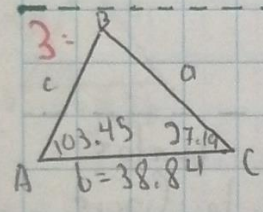 3:
B
c
a
103.45
27.19
A
b=38.84
C